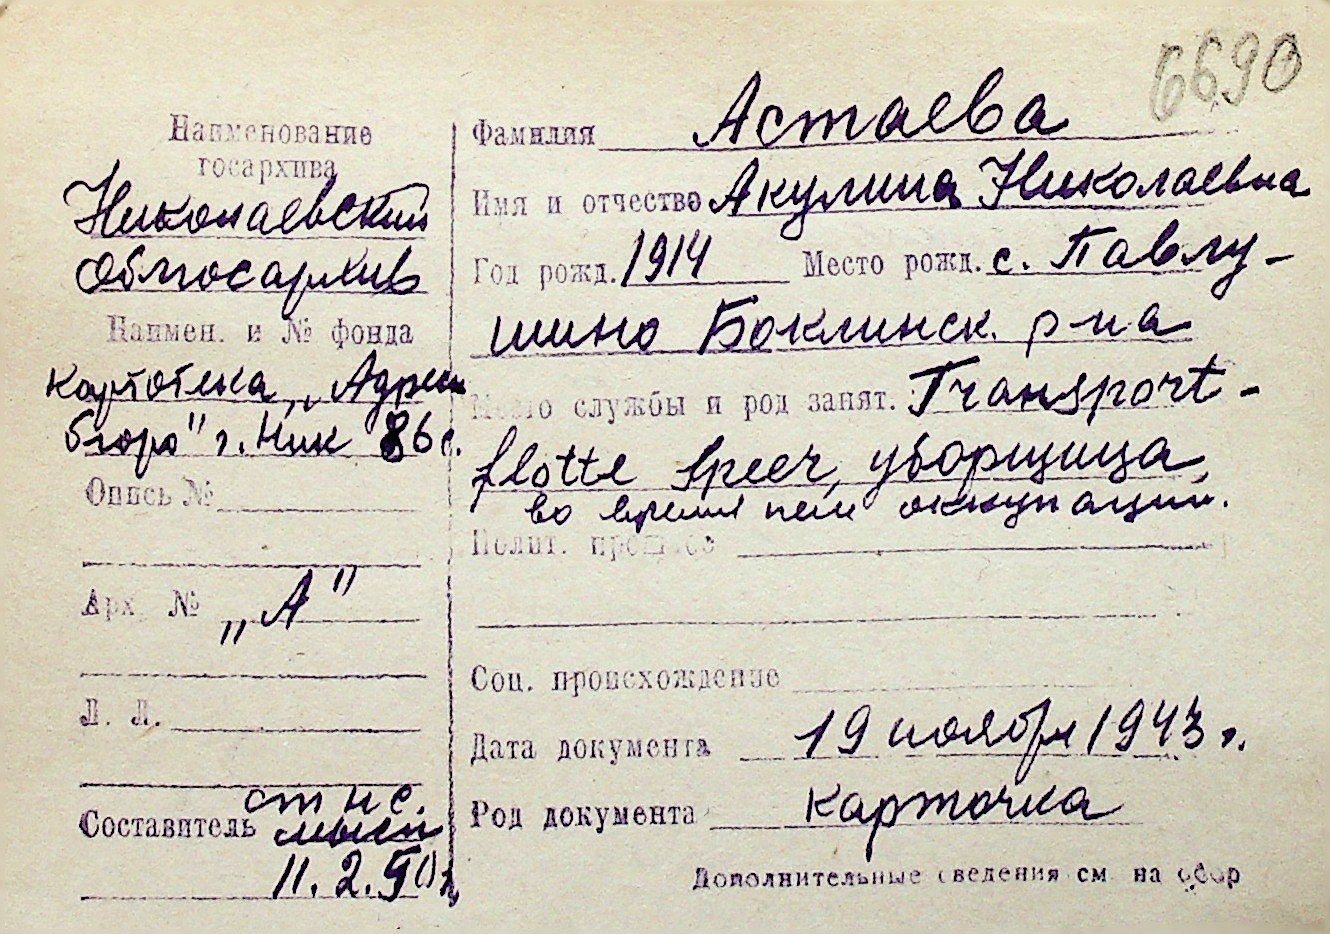 6690
Наименование
госархива
Николаевский
облгосархив
Наимен. и № фонда
картотека „Адресн
бюро" г. Ник 86 с.
Опись №
Арх. № „А"
Л. Л.
Составитель ст н с.
11.2.50 г.
Фамилия Астаева
Имя и отчество Акулина Николаевна
Год рожд. 1914 Место рожд. с. Павлу-
шино Боклинск. р-на
Место службы и род занят. Transport-
flotte Speer, уборщица,
во время нем оккупации.
Полит. прошлое
Соц. происхождение
Дата документа 19 ноября 1943 г.
Род документа карточка
Дополнительные сведения см на обор